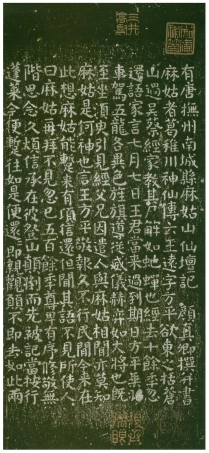 有唐撫州南城縣麻姑山仙壇記 顏真卿撰并書
麻姑者葛稚川神仙傳云王遠字方平欲東之括蒼
山過吳蔡經家教其尸解如蛇蟬也經去十餘年忽
還語家言七月七日王君當來過到期日方平乘
車駕五龍各異色旌旗導從威儀赫弈如大將也既
至坐須臾引見經父兄因遣人與麻姑相聞亦莫知
麻姑是何神也言王方平敬報久不行民間今來在
此想麻姑能暫來有頃信還但聞其語不見所使人
曰麻姑再拜不見忽已五百餘年尊卑有序修敬無
階思念久煩信承在彼登山顛倒而先被記當按行
蓬萊今便暫往如是便還〻即親觀願不即去如此兩